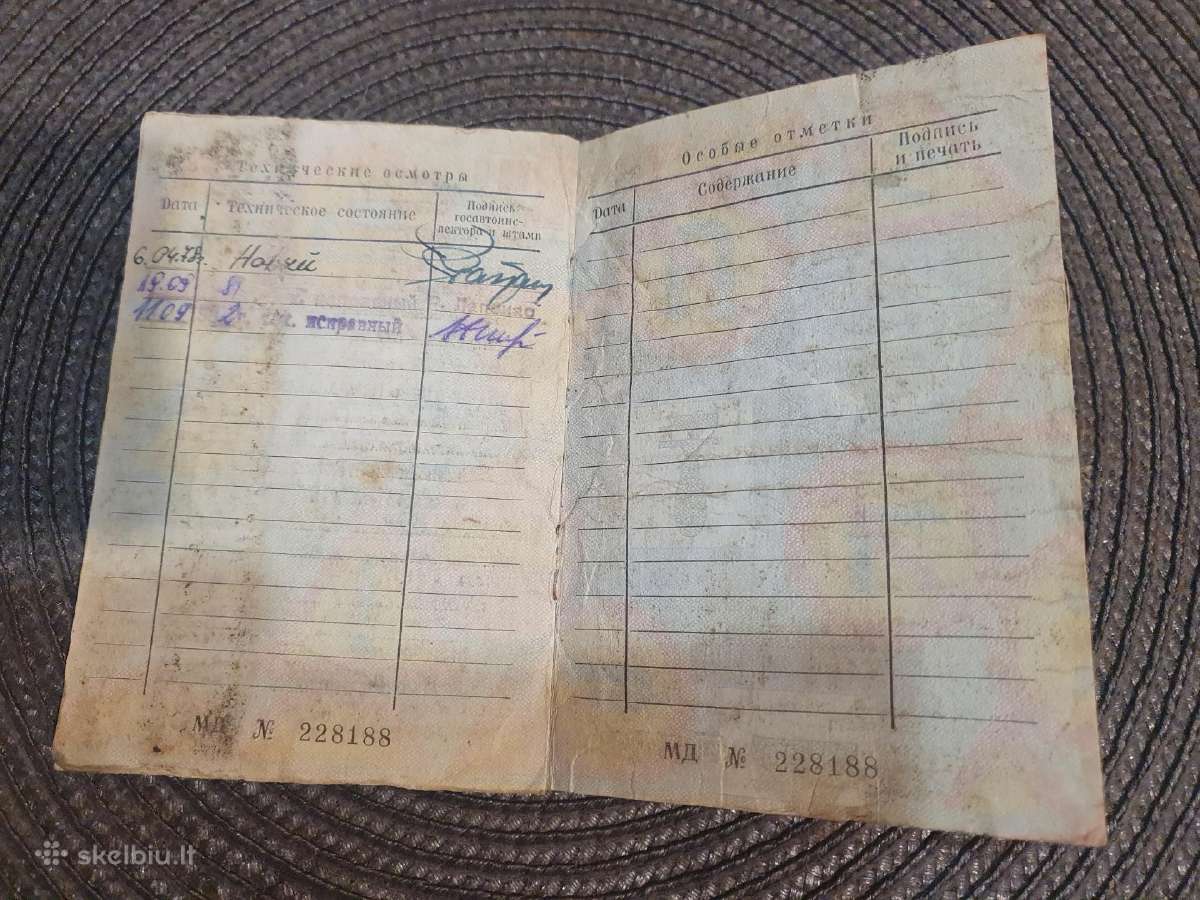 Технические осмотры
Дата
Техническое состояние
Подпись
госавтоинс-
пектора и штамп
6.04.78г. Новый
19.09
11.09 исправный
МД № 228188
Особые отметки
Дата
Содержание
Подпись
и печать
МД № 228188
skelbiu.lt